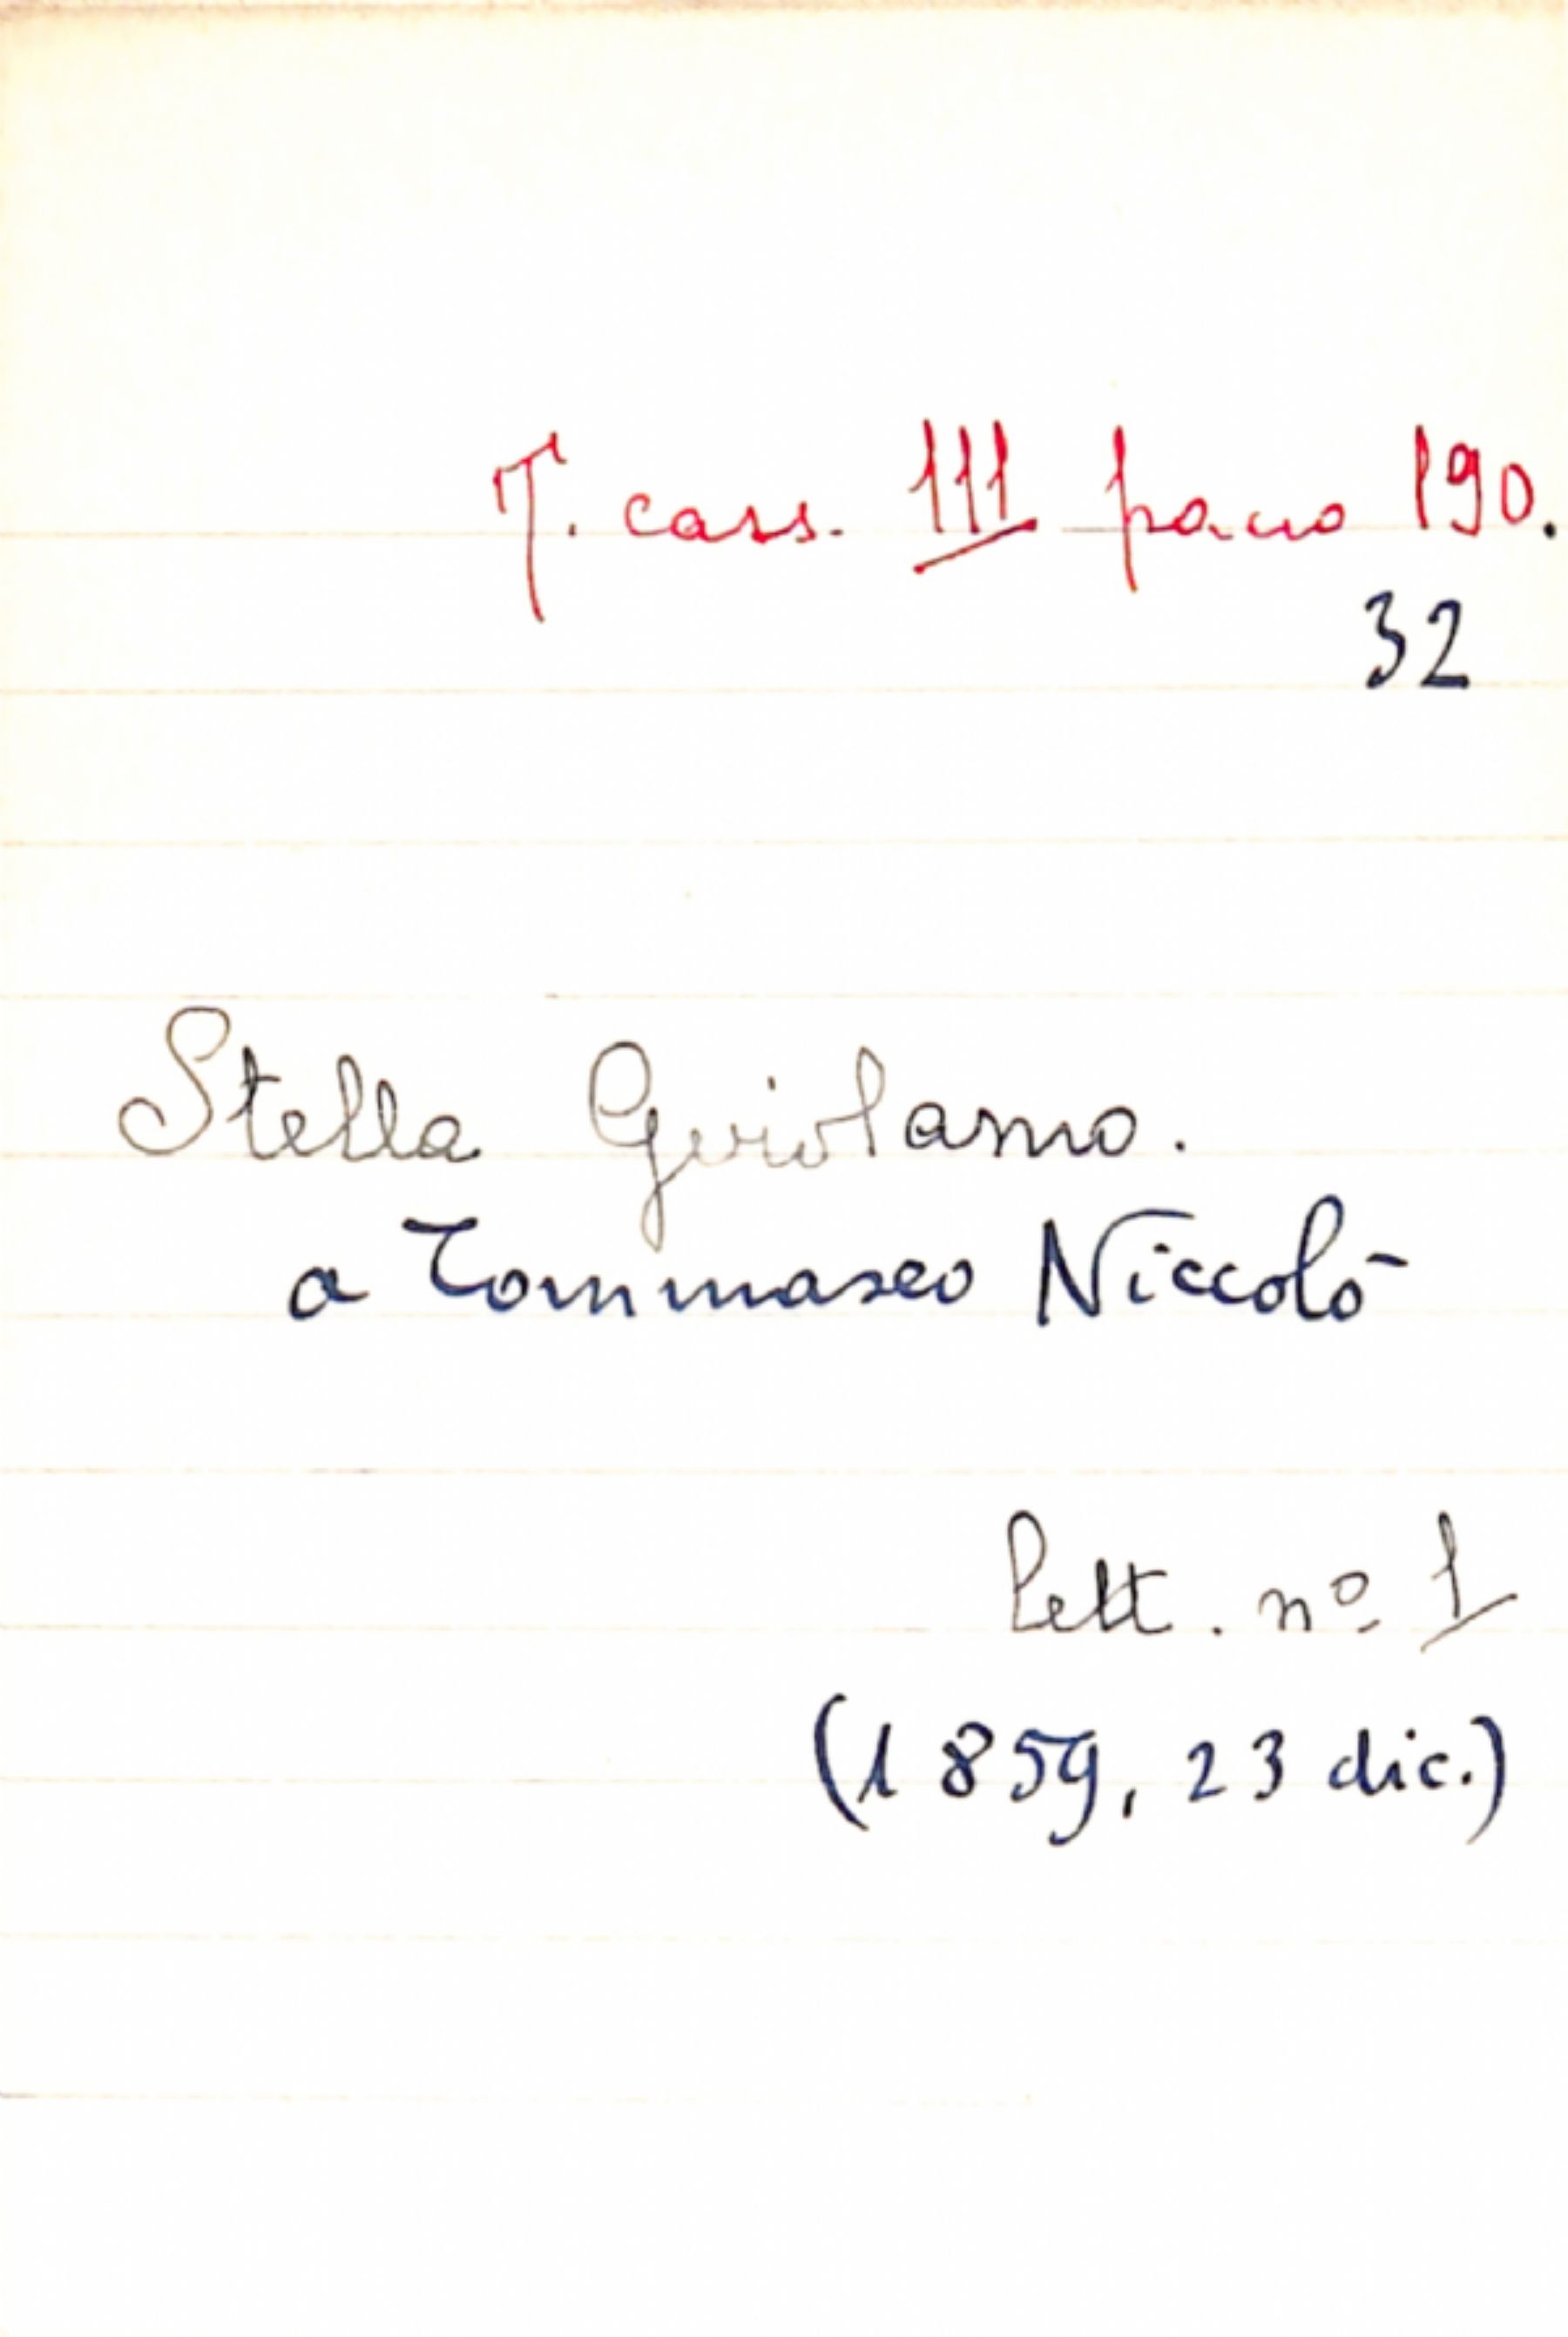 T. cass. III pacco 190.
32
Stella Girolamo.
a Tommaseo Niccolò
lett. nº 1
(1859, 23 dic.)